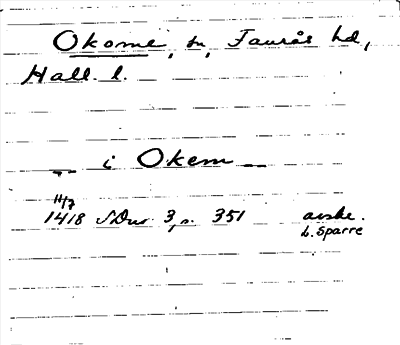 Okome, sn, Faurås hd,
Hall. l.
_ i Okem _
11/7
1418 SDns 3, s. 351 avskr.
L. Sparre